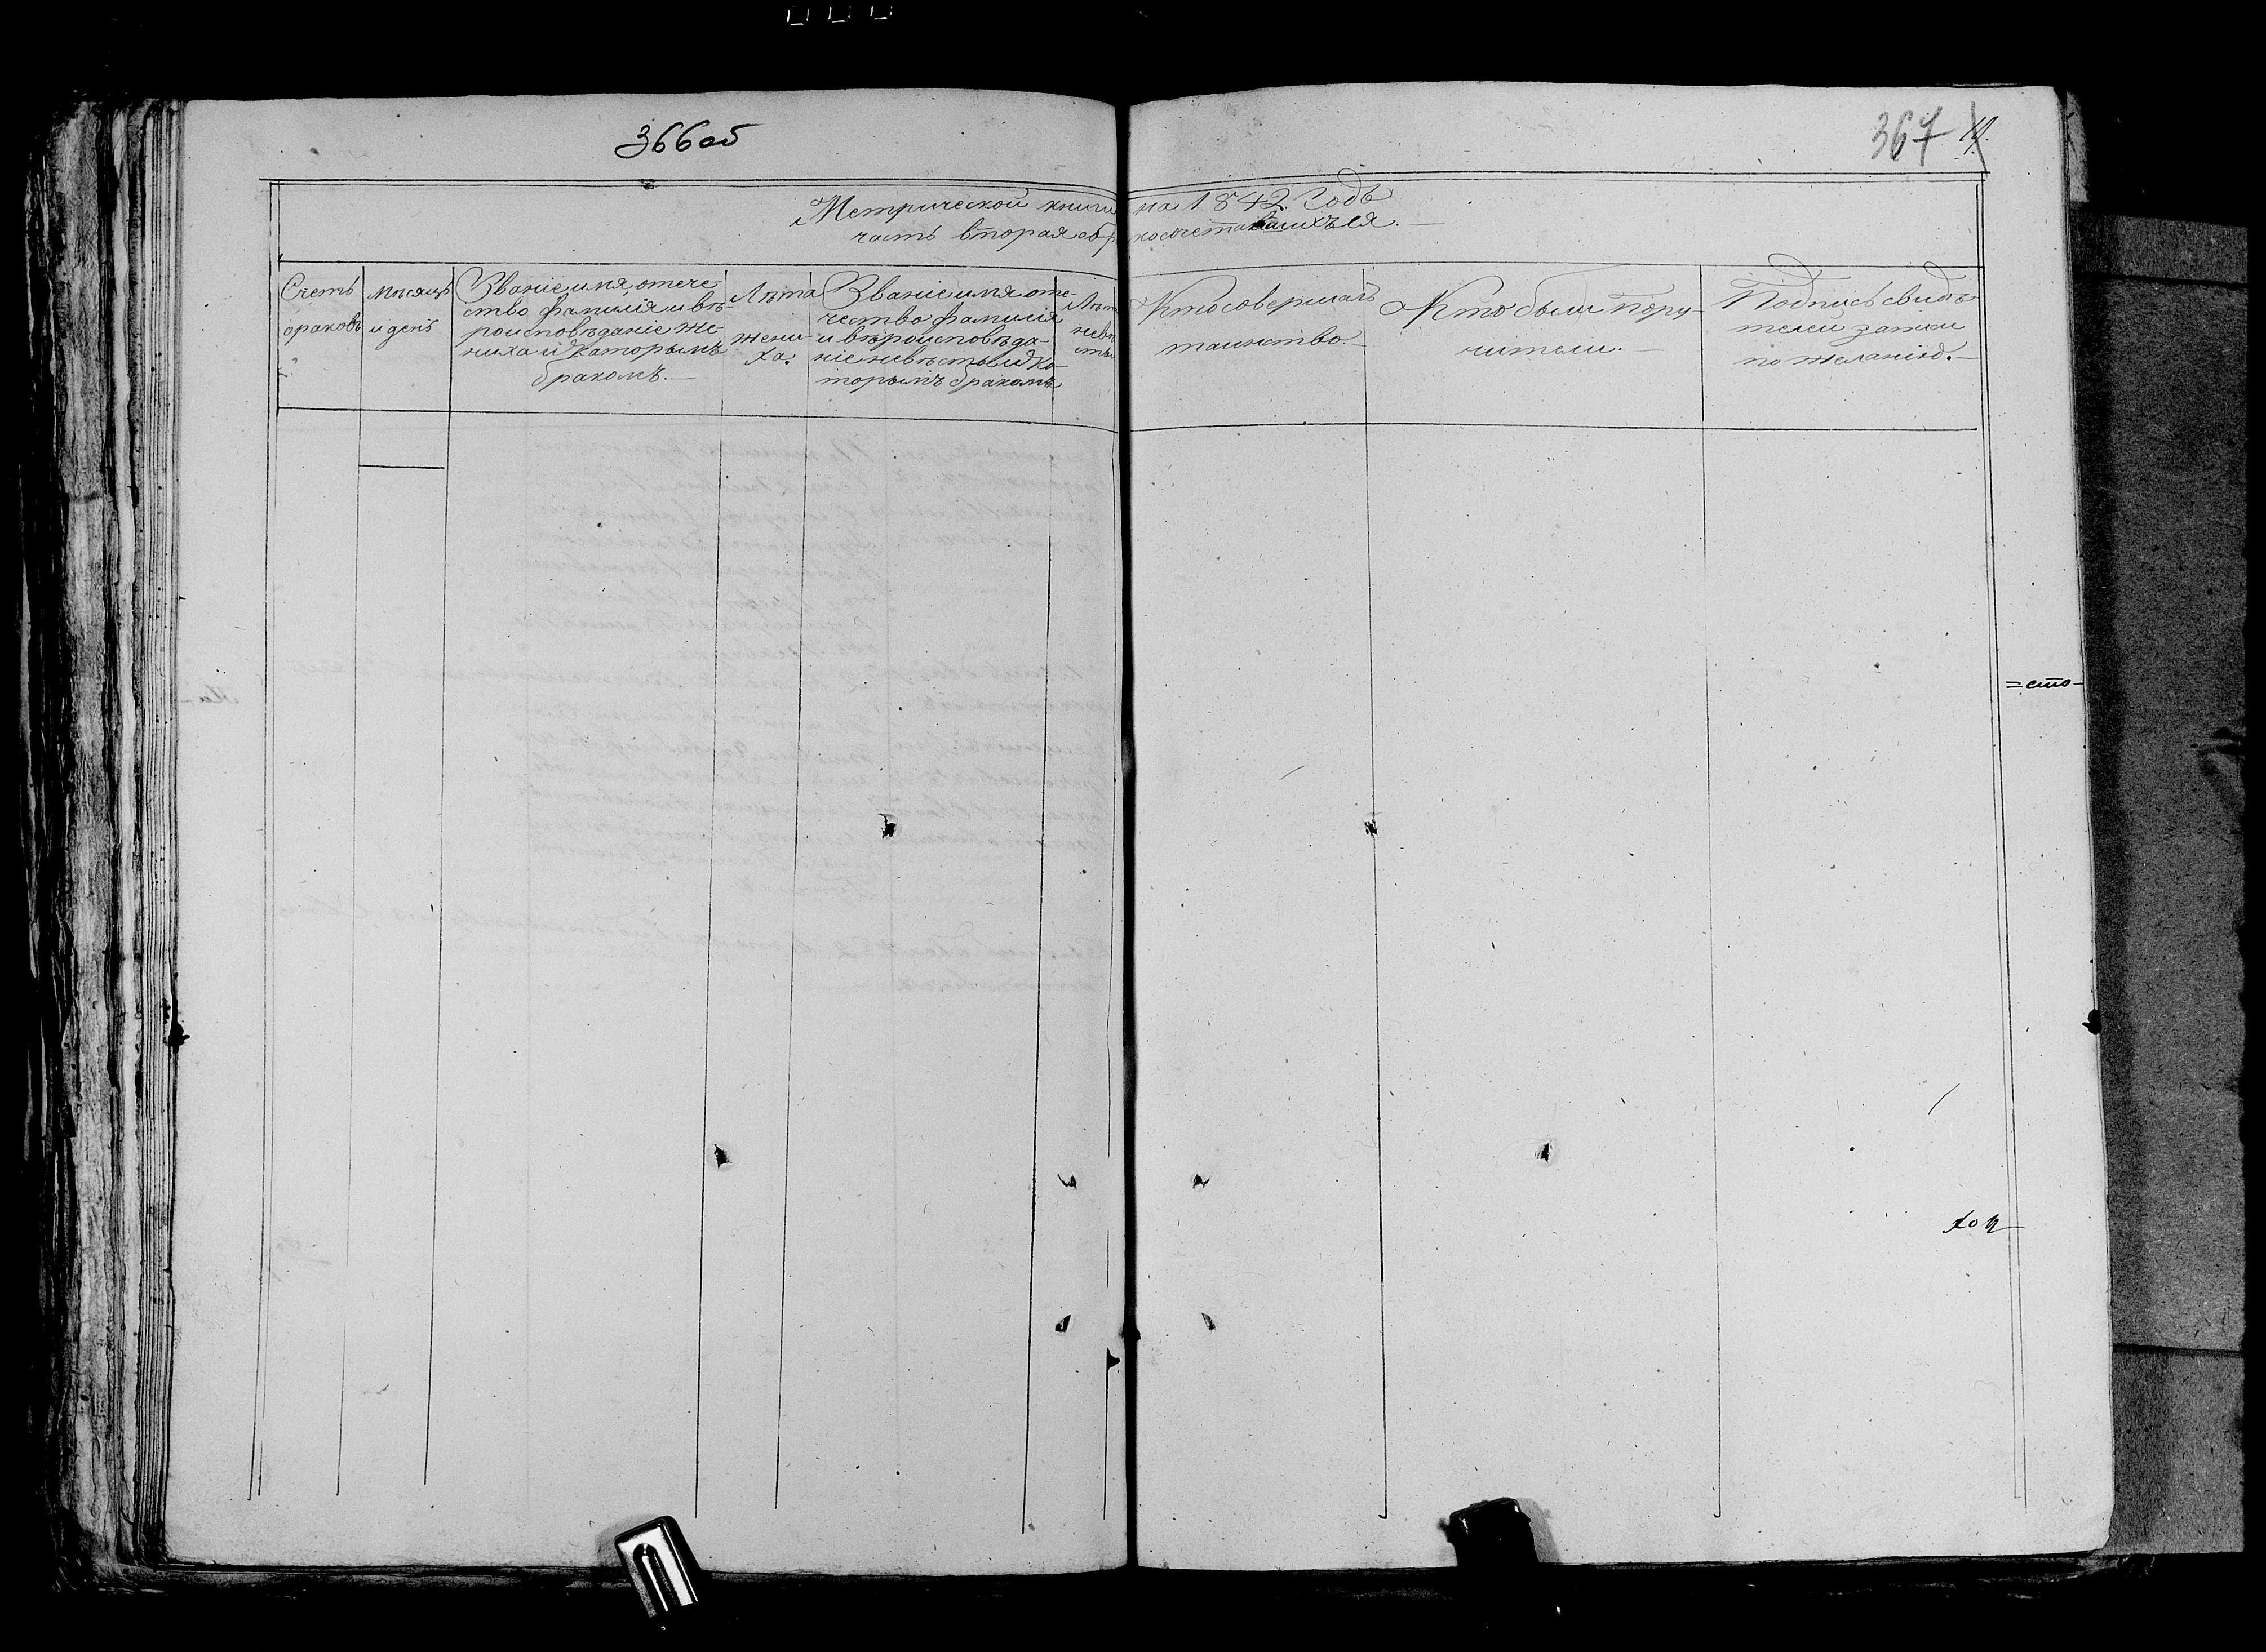 366об
367
Метрической книги на 1842 Годъ
часть вторая о бракосочетавшихъся.
Счетъ
браковъ
Мѣсяцъ
и день
Званіе имя, отече-
ство фамилія и вѣ-
роисповѣданіе же-
ниха и каторымъ
бракомъ.
Лѣта
жени-
ха.
Званіе имя оте-
чество фамилія
и вѣроисповѣда-
ніе невѣсты и ко-
торымъ бракомъ
Кто совершалъ
таинство.
Кто были пору-
чители.
Подпись свидѣ-
телей записи
по желанію.
=сто-